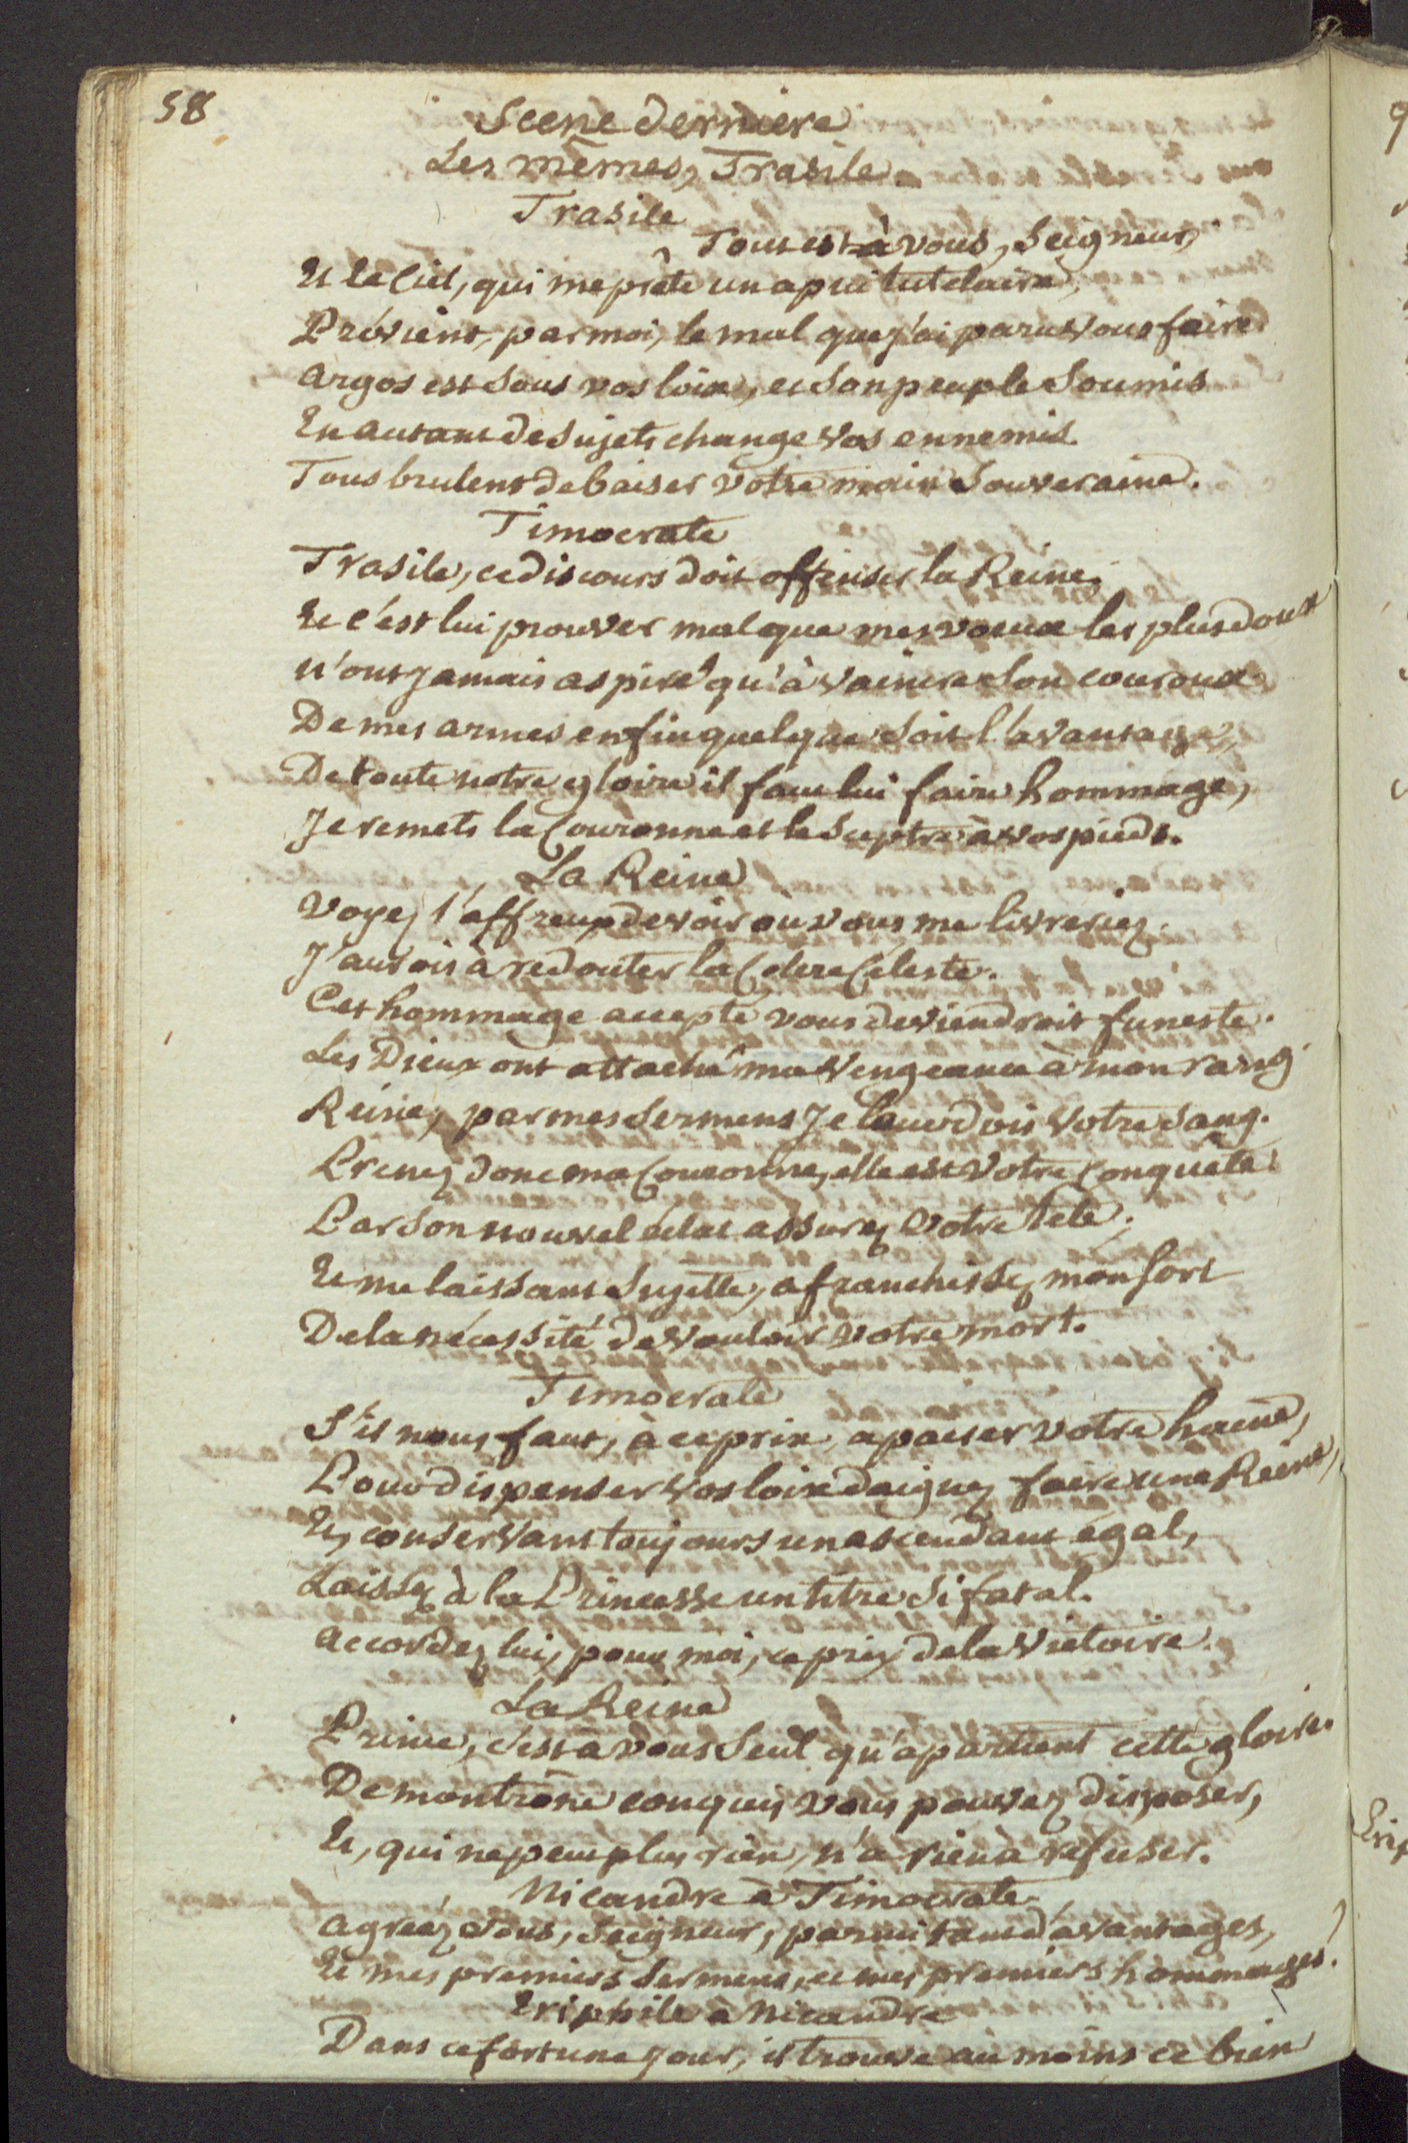 58
Scene derniere
Les mêmes, Trasile
Trasile
Tout est à vous, Seigneur,
Et le Ciel, qui me prête un apui tutelaire,
Prévient, par moi, le mal que j'ai paru vous faire
Argos est sous vos loix, et son peuple soumis
En autant de sujets change vos ennemis.
Tous brulent de baiser votre main Souveraine.
Timocrate
Trasile, ce discours doit offenser la Reine.
Et c'est lui prouver mal que mes voeux les plus doux
n'ont jamais aspiré qu'à vaincre son couroux.
De mes armes enfin quelque soit l'avantage,
De toute notre gloire il faut lui faire hommage,
Je remets la Couronne et le Sceptre à vos pieds.
La Reine
Voyez l'affreux devoir où vous me livreriez.
J'aurois à redouter la Colere Céleste.
Cet hommage accepté vous deviendroit funeste.
Les Dieux ont attaché ma vengeance à mon rang
Reine, par mes sermens Je leur dois votre sang.
Prenez donc ma Couronne, elle est votre Conquête.
Par son nouvel éclat assurez votre tête;
Et me laissant Sujette, afranchissez mon sort
De la nécessité de vouloir votre mort.
Timocrate
S'il nous faut, à ce prix, apaiser votre haine,
Pour dispenser vos loix daignez faire une Reine,
Et, conservant toujours un ascendant égal,
Laissez à la Princesse un titre si fatal.
accordez lui, pour moi, ce prix de la Victoire.
La Reine
Prince, c'est à vous seul qu'apartient cette gloire.
De mon trône conquis vous pouvez disposer,
Et, qui ne peut plus rien, n'a rien à refuser.
Nicandre à Timocrate
agréez vous, Seigneur, parmi tant d'avantages,
Et mes premiers sermens, et mes premiers hommages?
Eriphile à Nicandre
Dans ce fortuné jour, il trouve au moins ce bien